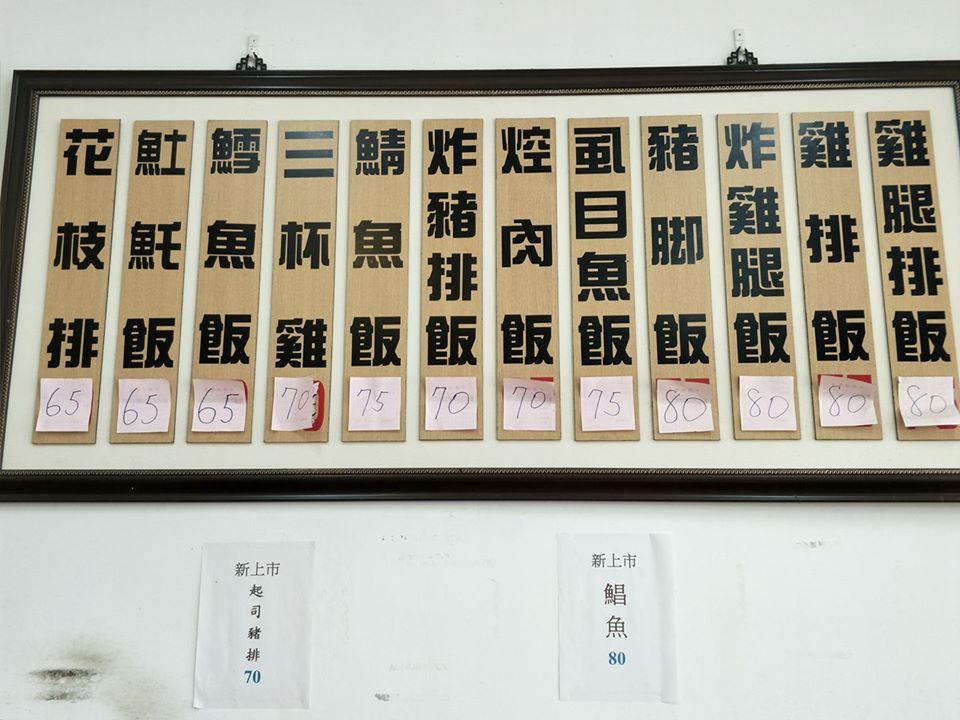 雞腿排飯
80
雞排飯
80
炸雞腿飯
80
豬脚飯
80
虱目魚飯
75
焢肉飯
70
炸豬排飯
70
鯖魚飯
75
三杯雞
70
鱈魚飯
65
魠飯
65
花枝排
65
新上市
起司豬排
70
新上市
鯧魚
80